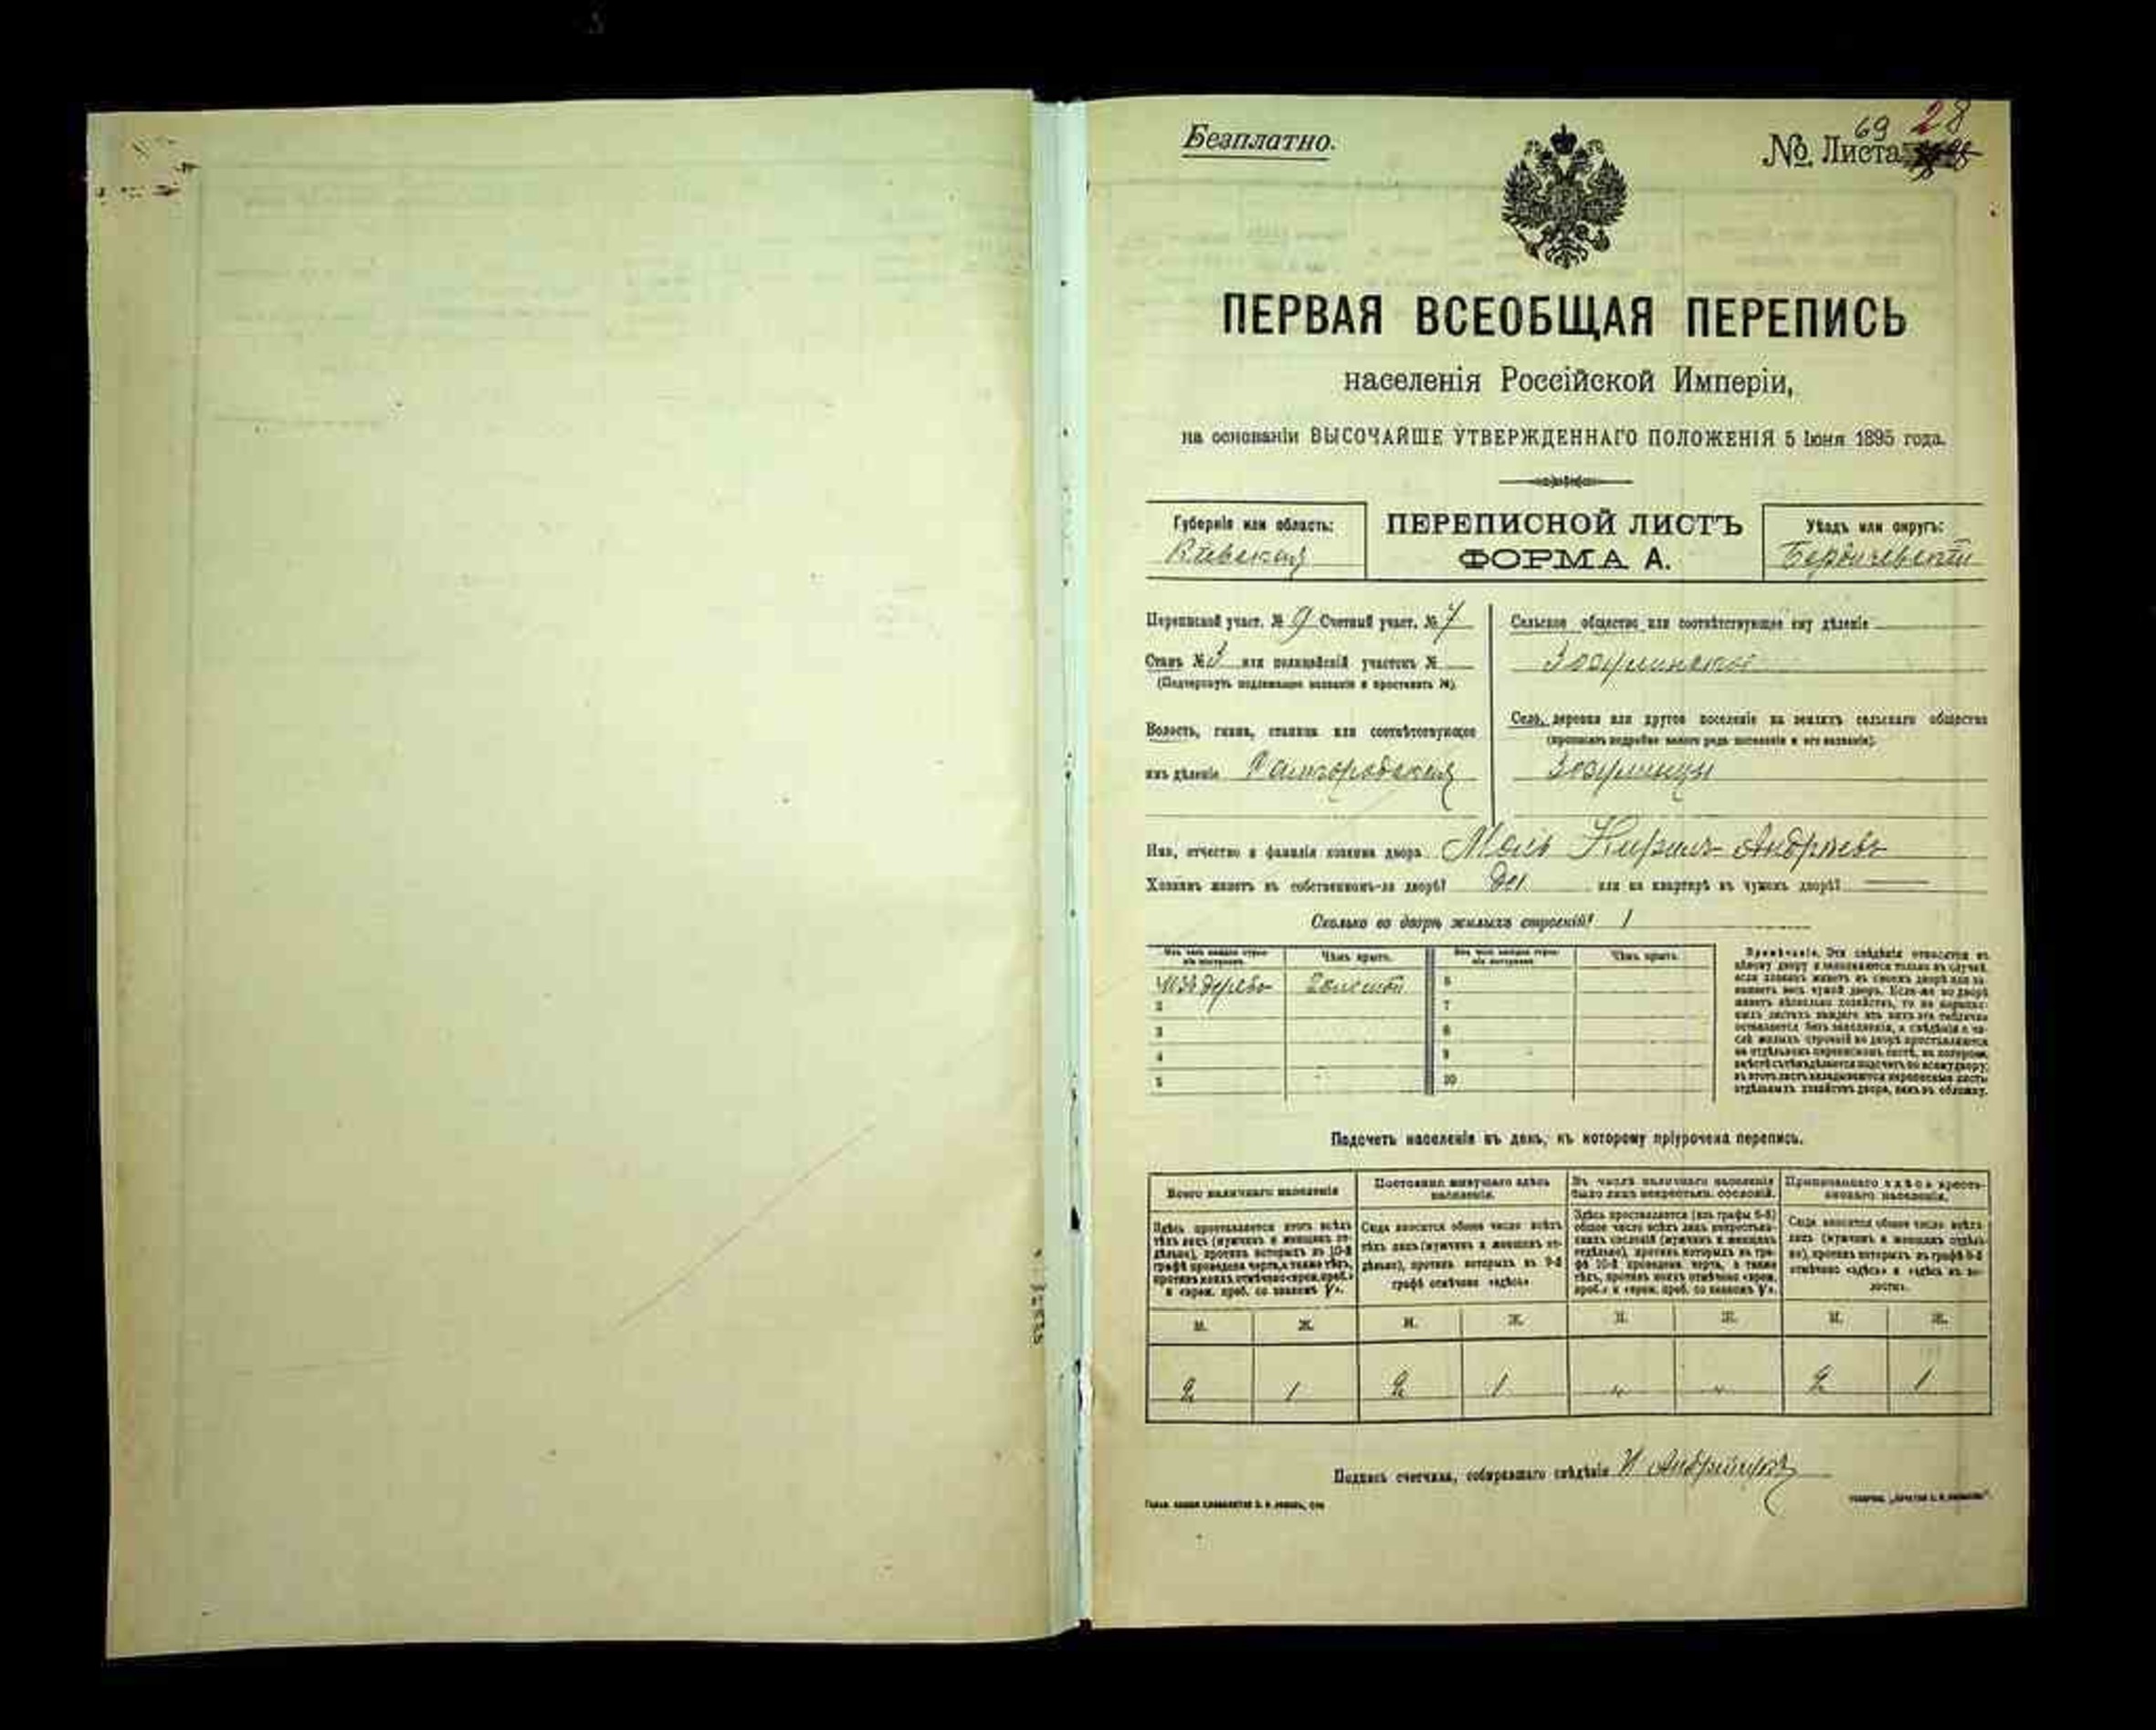 Безплатно.
69 28
№ Листа
ПЕРВАЯ ВСЕОБЩАЯ ПЕРЕПИСЬ
населенія Россійской Имперіи,
на основаніи ВЫСОЧАЙШЕ УТВЕРЖДЕННАГО ПОЛОЖЕНІЯ 5 Іюня 1895 года.
Губернія или область:
Кіевская
ПЕРЕПИСНОЙ ЛИСТЪ
ФОРМА А.
Уѣздъ или округъ:
Бердичевскій
Переписной участ. № 9 Счетный участ. № 7
Станъ № 3 или полицейскій участокъ №
(Подчеркнуть подлежащее названіе и проставить №).
Волость, гмина, станица или соотвѣтствующее
имъ дѣленіе Самгородская
Сельское общество или соотвѣтствующее ему дѣленіе
Зозулинское
Село, деревня или другое поселеніе на земляхъ сельскаго общества
(прописать подробно какого рода поселеніе и его названіе).
Зозулинцы
Имя, отчество и фамилія хозяина двора Моль Кирилъ Андреевъ
Хозяинъ живетъ въ собственномъ-ли дворѣ? Да или на квартирѣ въ чужомъ дворѣ?
Сколько во дворѣ жилыхъ строеній? 1
Изъ чего каждое строеніе построено. Чѣмъ крыто. Изъ чего каждое строеніе построено. Чѣмъ крыто.
изъ дерева 6
2 7
3 8
4 9
5 10
Примѣчаніе. Эти свѣдѣнія относятся къ
цѣлому двору и заполняются только въ случаѣ,
если хозяинъ живетъ въ своемъ дворѣ или за-
нимаетъ весь чужой дворъ. Если-же во дворѣ
живетъ нѣсколько хозяйствъ, то на перепис-
ныхъ листахъ каждаго изъ нихъ эта табличка
оставляется безъ заполненія, а свѣдѣнія о чи-
слѣ жилыхъ строеній во дворѣ проставляются
на отдѣльномъ переписномъ листѣ, на которомъ
вмѣстѣ съ тѣмъ дѣлается подсчетъ по всему двору;
въ этотъ листъ вкладываются переписные листы
отдѣльныхъ хозяйствъ двора, какъ въ обложку.
Подсчетъ населенія въ день, къ которому пріурочена перепись.
Всего наличнаго населенія
Здѣсь проставляется итогъ всѣхъ
тѣхъ лицъ (мужчинъ и женщинъ от-
дѣльно), противъ которыхъ въ 10-й
графѣ проведена черта, а также тѣхъ,
противъ коихъ отмѣчено «врем. преб.»
и «врем. преб. со знакомъ V».
Постоянно живущаго здѣсь
населенія.
Сюда вносится общее число всѣхъ
тѣхъ лицъ (мужчинъ и женщинъ от-
дѣльно), противъ которыхъ въ 9-й
графѣ отмѣчено «здѣсь»
Въ числѣ наличнаго населенія
было лицъ некрестьян. сословій.
Здѣсь проставляется (изъ графы 6-й)
общее число всѣхъ лицъ некрестьян-
скихъ сословій (мужчинъ и женщинъ
отдѣльно), противъ которыхъ въ гра-
фѣ 10-й проведена черта, а также
тѣхъ, противъ коихъ отмѣчено «врем.
преб.» и «врем. преб. со знакомъ V».
Приписаннаго здѣсь кресть-
янскаго населенія.
Сюда вносится общее число всѣхъ
лицъ (мужчинъ и женщинъ отдѣль-
но), противъ которыхъ въ графѣ 8-й
отмѣчено «здѣсь» и «здѣсь въ во-
лости».
М. Ж. М. Ж. М. Ж. М. Ж.
2 1 2 1 " " 2 1
Подпись счетчика, собиравшаго свѣдѣнія И Андрійчукъ